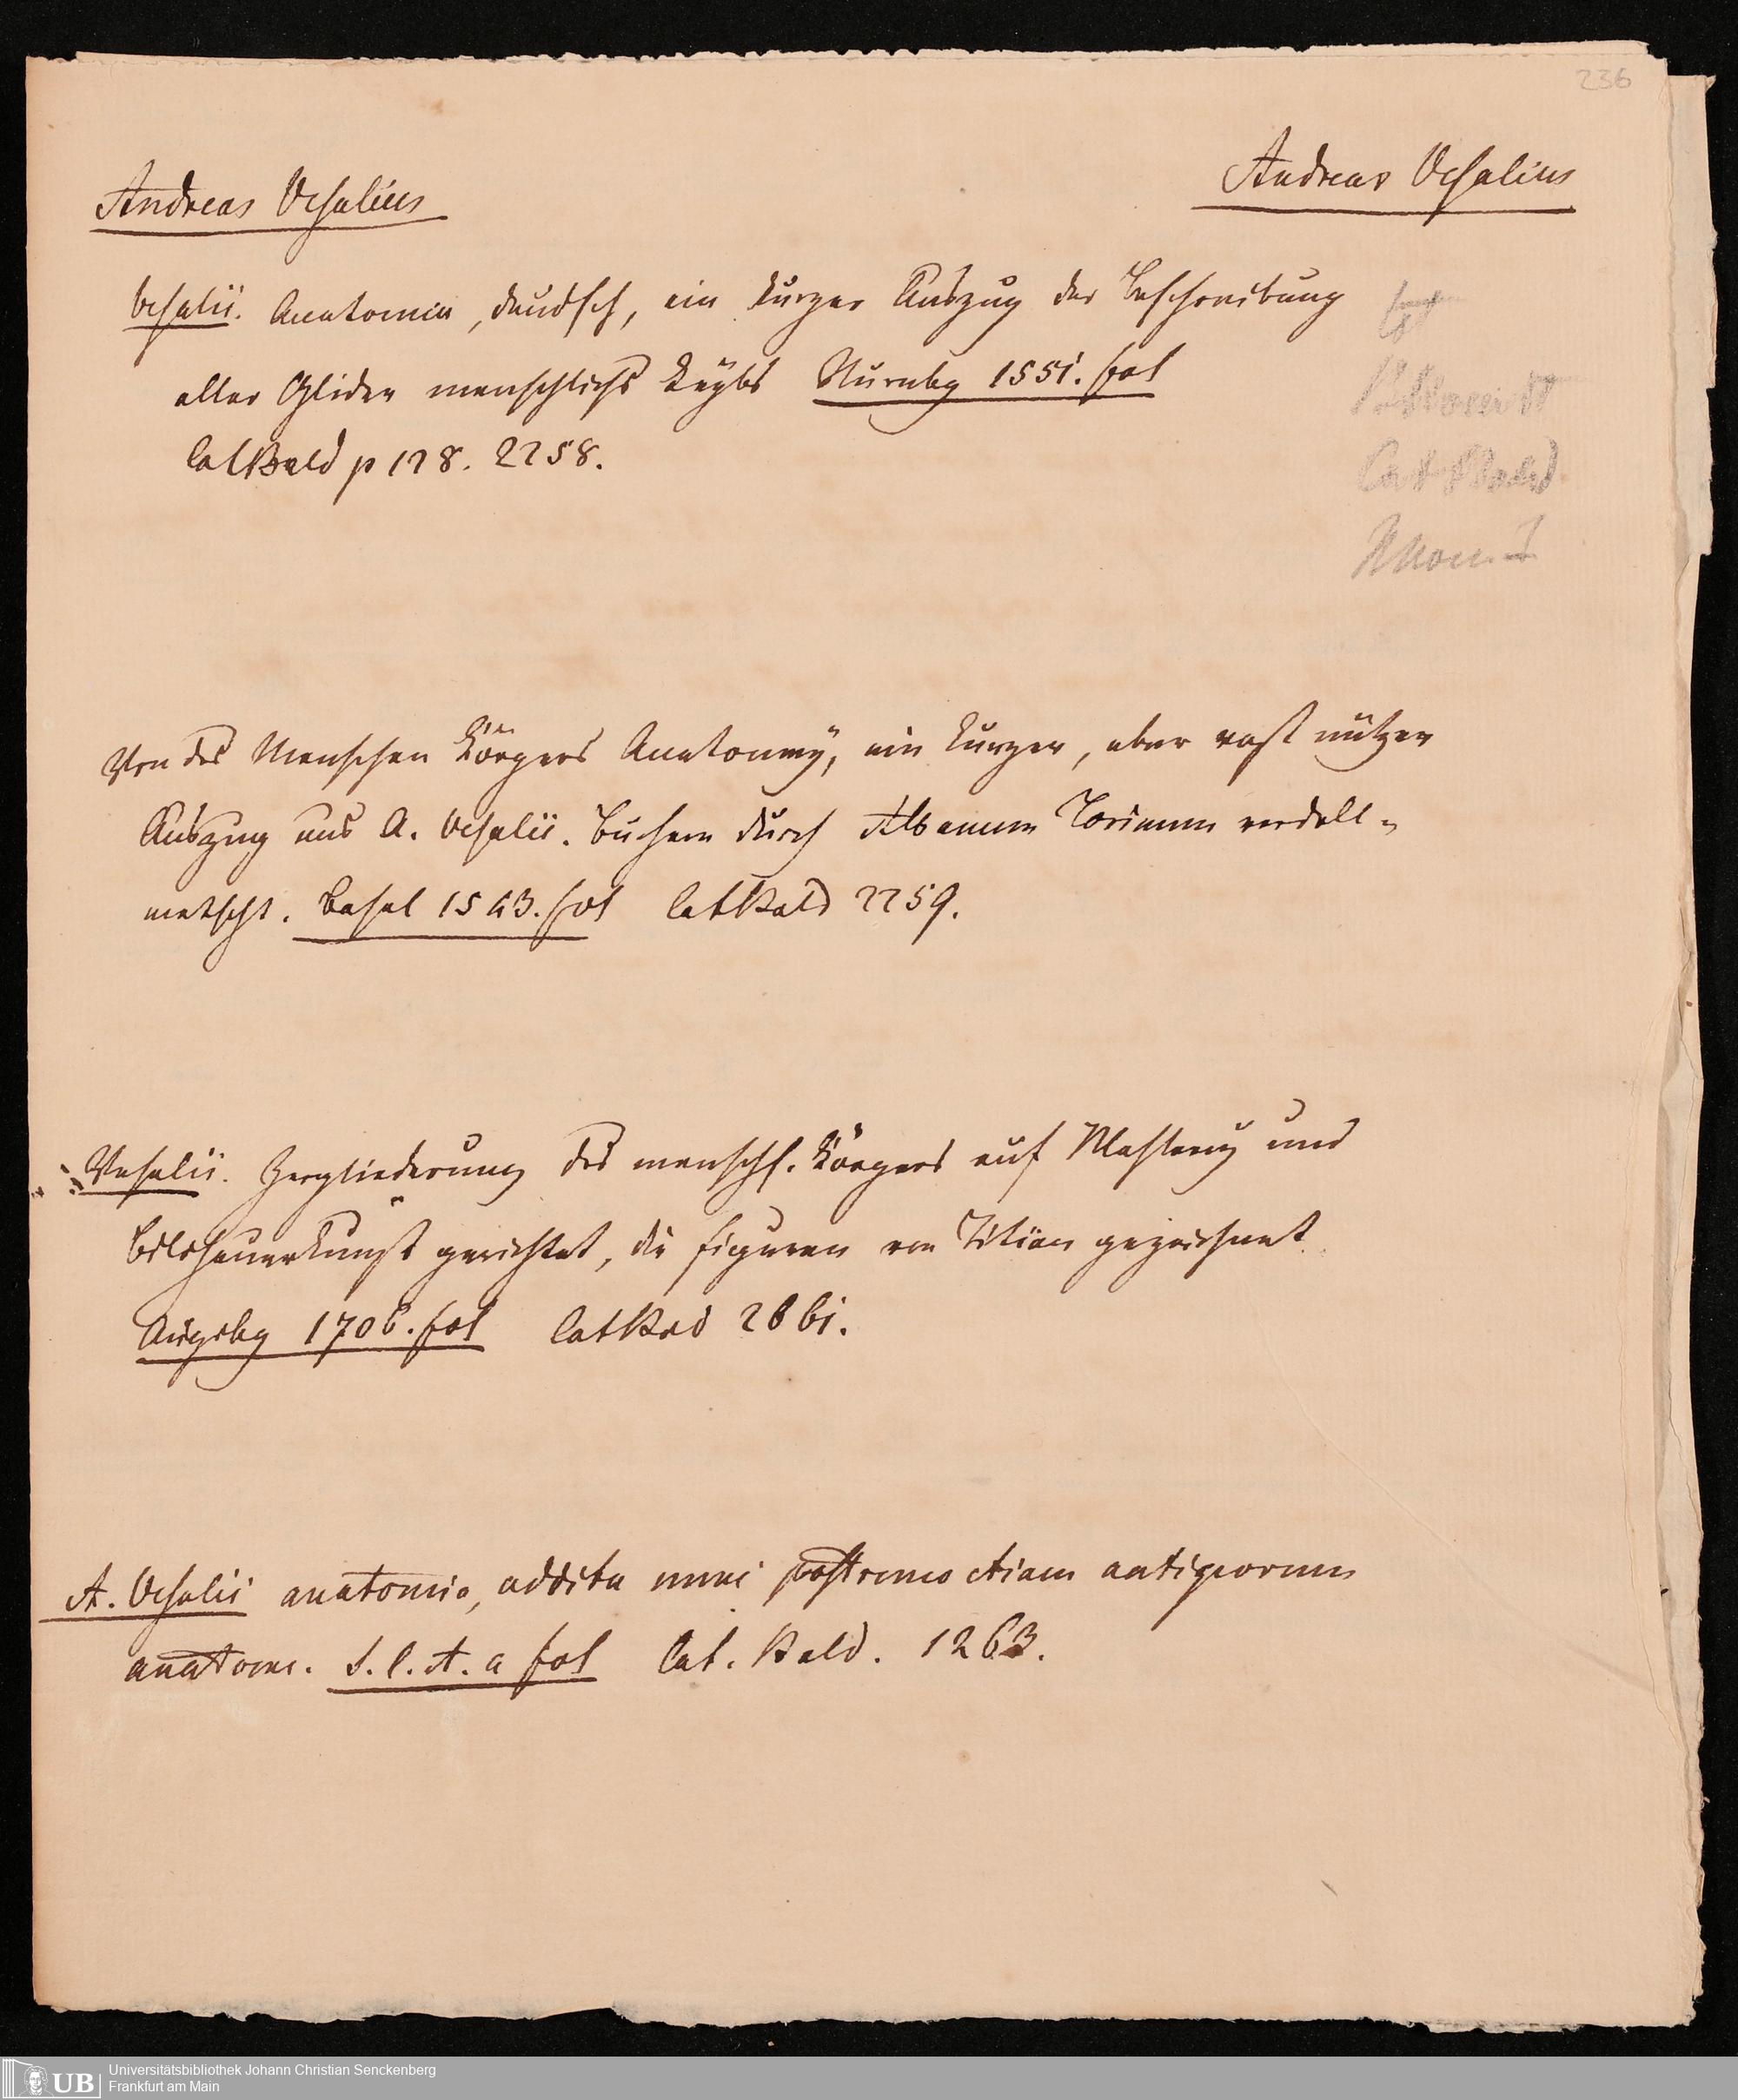 236
Andreas Vesalius
Andreas Vesalius
Vesalii. Anatomia, deudsch, ein kurzer Auszug der Beschreibung
aller Glider menschlichs Leybs Nürnbg 1551. fol
Cat Bald p 128. 2258.
Cat Bald
Von des Menschen Körpers Anatomey, ein kurzer, aber vast nützer
Auszug aus A. Vesalii. Buchern durch Albanum Torinum verdoll-
metscht. Basel 1543. fol Cat Bald 2259.
Vesalii. Zergliederung des menschl. Körpers auf Mahlerey und
Bildhauerkunst gerichtet, die Figuren von Titian gezeichnet
Augsbg 1706. fol Cat Bald
A. Vesalii anatomia, addita nunc postremo etiam antiquorum
anatome. S. l. et. a fol Cat. Bald. 1263.
UB
Universitätsbibliothek Johann Christian Senckenberg
Frankfurt am Main